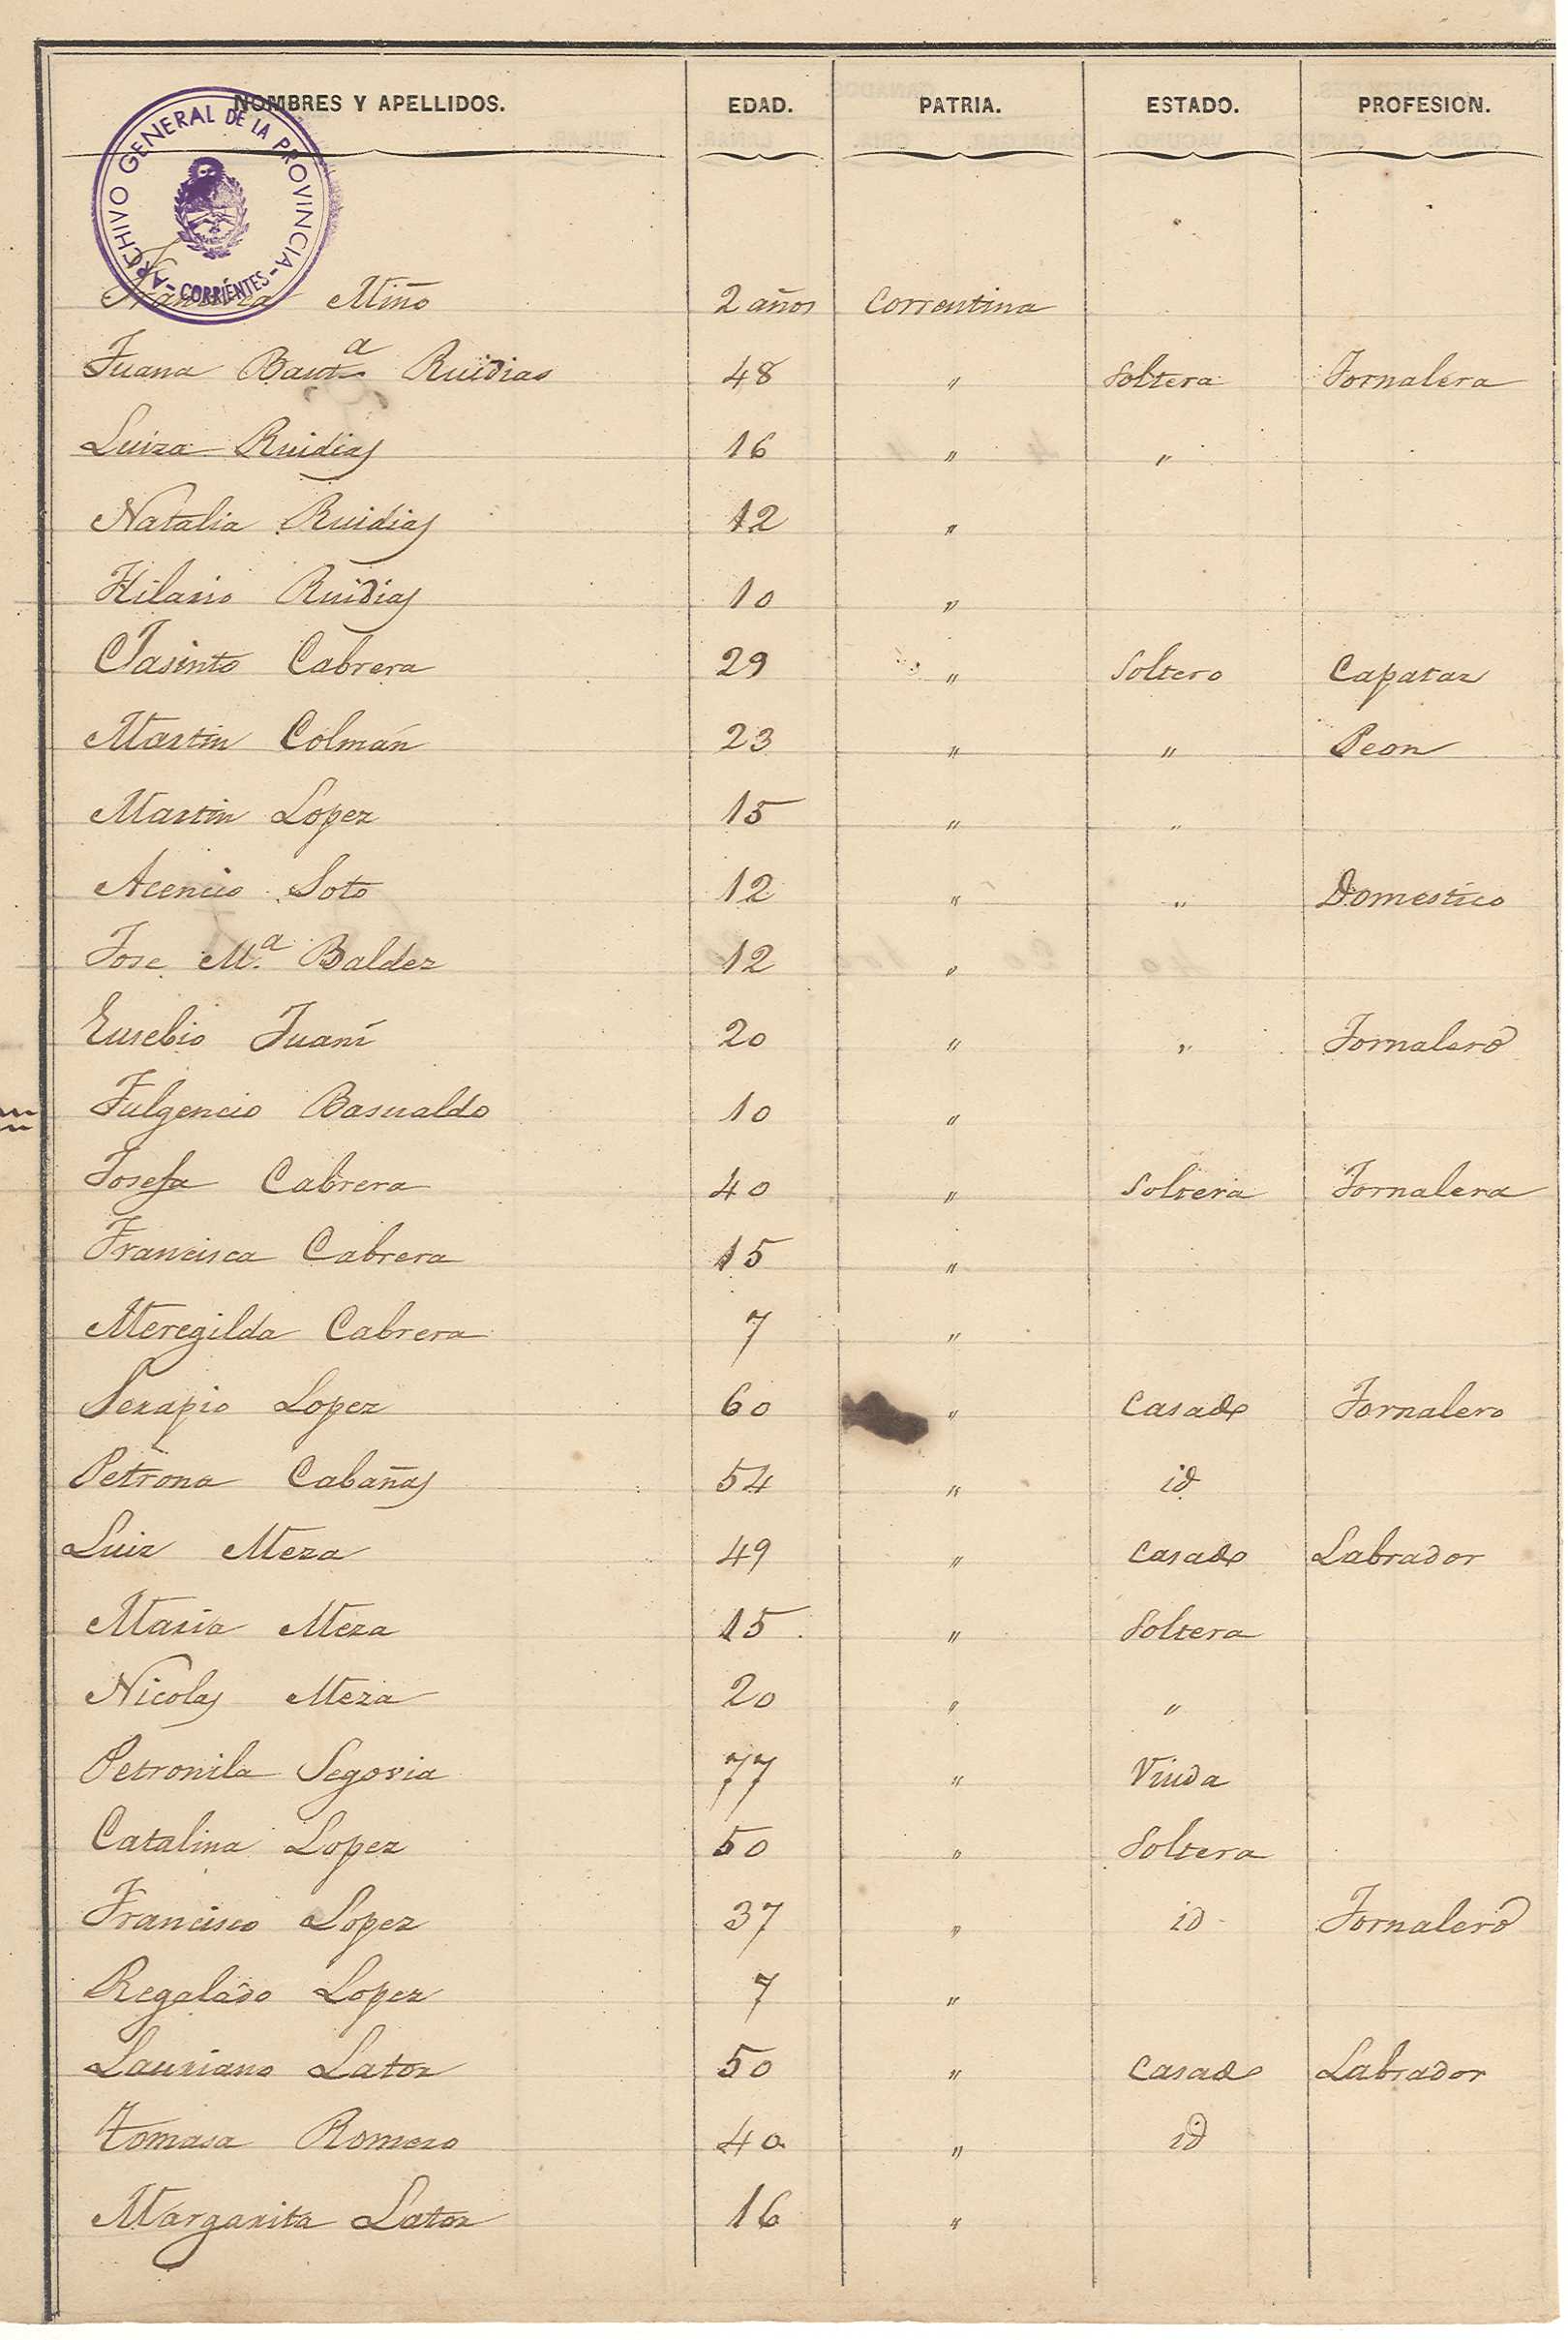 NOMBRES Y APELLIDOS. EDAD. PATRIA. ESTADO. PROFESION.
ARCHIVO GENERAL DE LA PROVINCIA - CORRIENTES -
Miño 2 años Correntina
Juana Baut.a Ruidias 48 " Soltera Jornalera
Luiza Ruidias 16 " "
Natalia Ruidias 12 "
Hilario Ruidias 10 "
Jasinto Cabrera 29 " Soltero Capataz
Martin Colmán 23 " " Peon
Martin Lopez 15 " "
Acencio Soto 12 " " Domestico
Jose M.a Baldez 12 "
Eusebio Juani 20 " " Jornalero
Fulgencio Basualdo 10 "
Josefa Cabrera 40 " Soltera Jornalera
Francisca Cabrera 15 "
Meregilda Cabrera 7 "
Serapio Lopez 60 " Casado Jornalero
Petrona Cabañas 54 " id
Luiz Meza 49 " Casado Labrador
Maria Meza 15 " Soltera
Nicolas Meza 20 " "
Petronila Segovia 77 " Viuda
Catalina Lopez 50 " Soltera
Francisco Lopez 37 " id Jornalero
Regalado Lopez 7 "
Lauriano Lator 50 " Casado Labrador
Tomasa Romero 40 " id
Margarita Lator 16 "